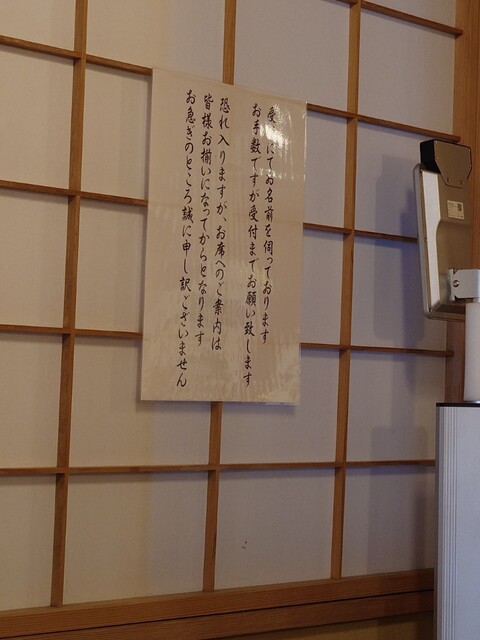 受付にてお名前を伺っております
お手数ですが受付までお願い致します
恐れ入りますが、お席へのご案内は
皆様お揃いになってからとなります
お急ぎのところ誠に申し訳ございません